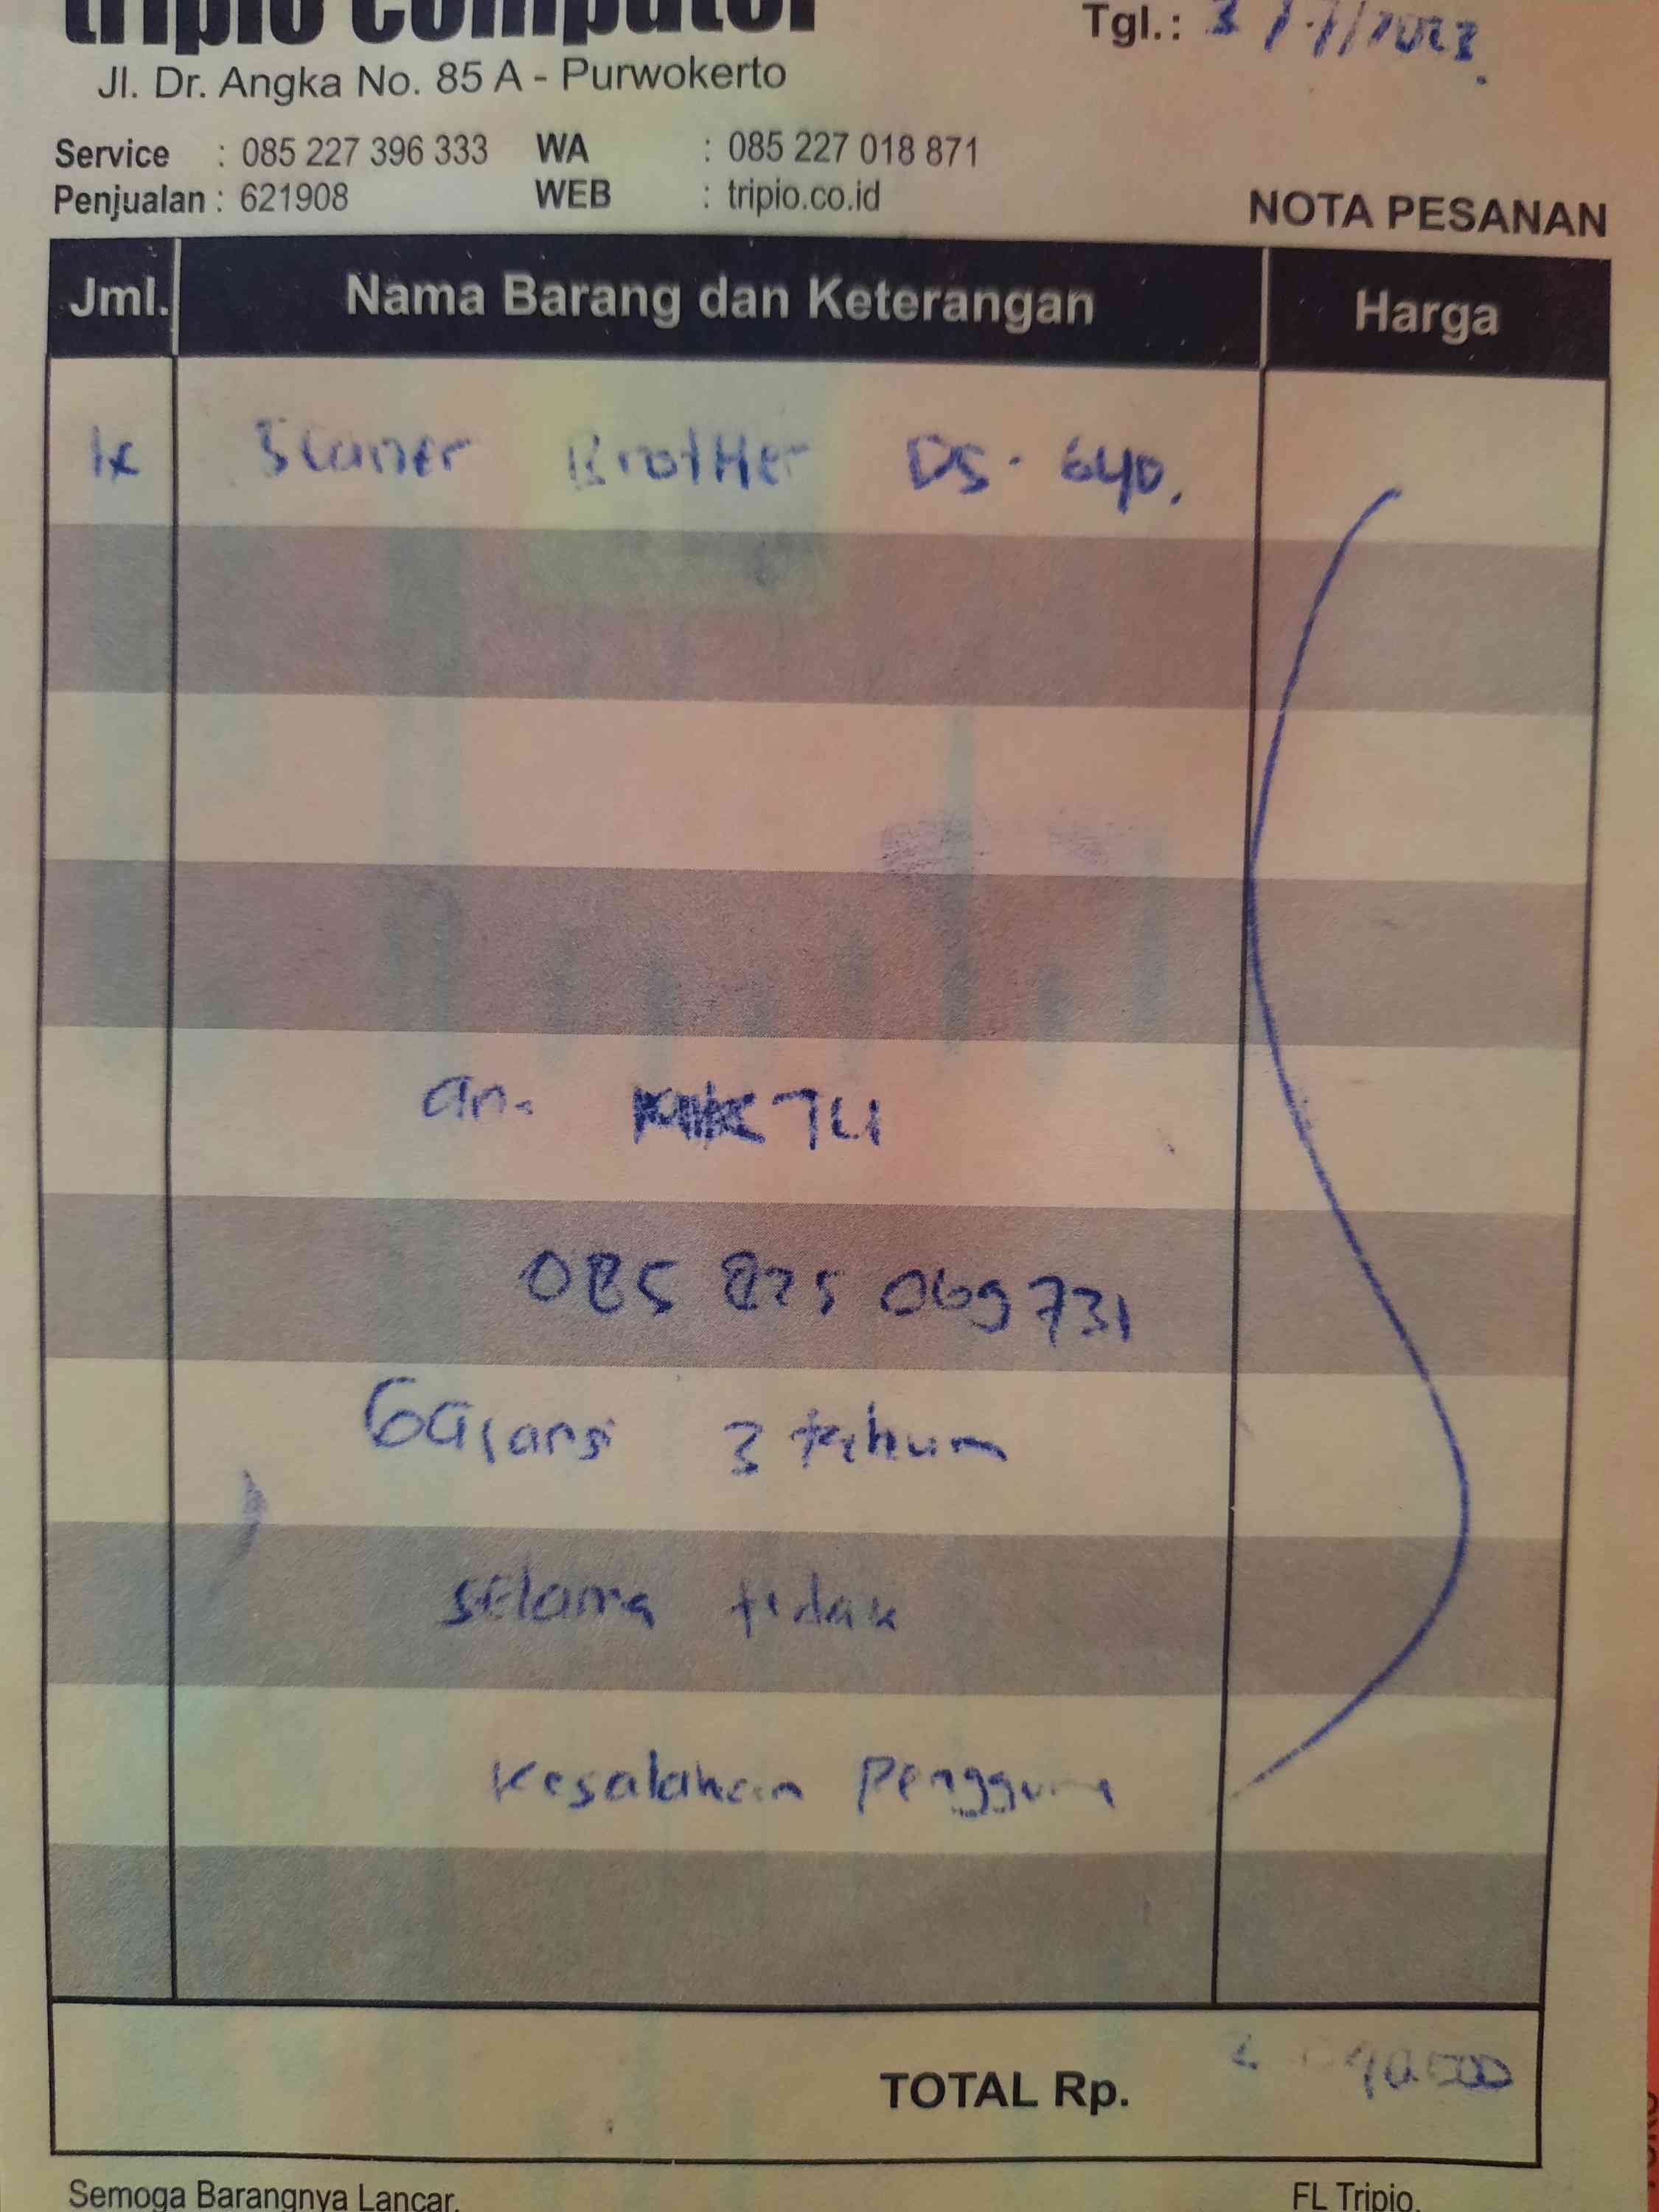 tripio computer
Tgl.: 3/7/2023.
Jl. Dr. Angka No. 85 A - Purwokerto
Service : 085 227 396 333 WA : 085 227 018 871
Penjualan : 621908 WEB : tripio.co.id
NOTA PESANAN
Jml. Nama Barang dan Keterangan Harga
1x Scaner BrotHer DS-640.
an.
085 875 069 731
Garansi 3 tahun
selama tidak
Kesalahan Pengguna
TOTAL Rp.
Semoga Barangnya Lancar. FL Tripio.